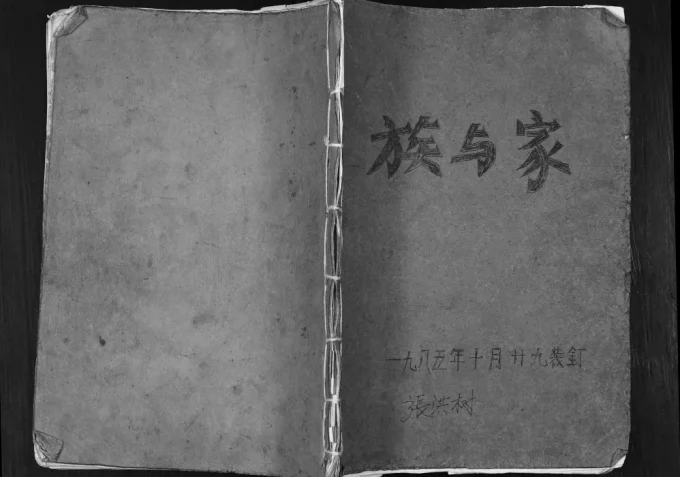 族与家
一九八五年十月廿九装釘
張洪树